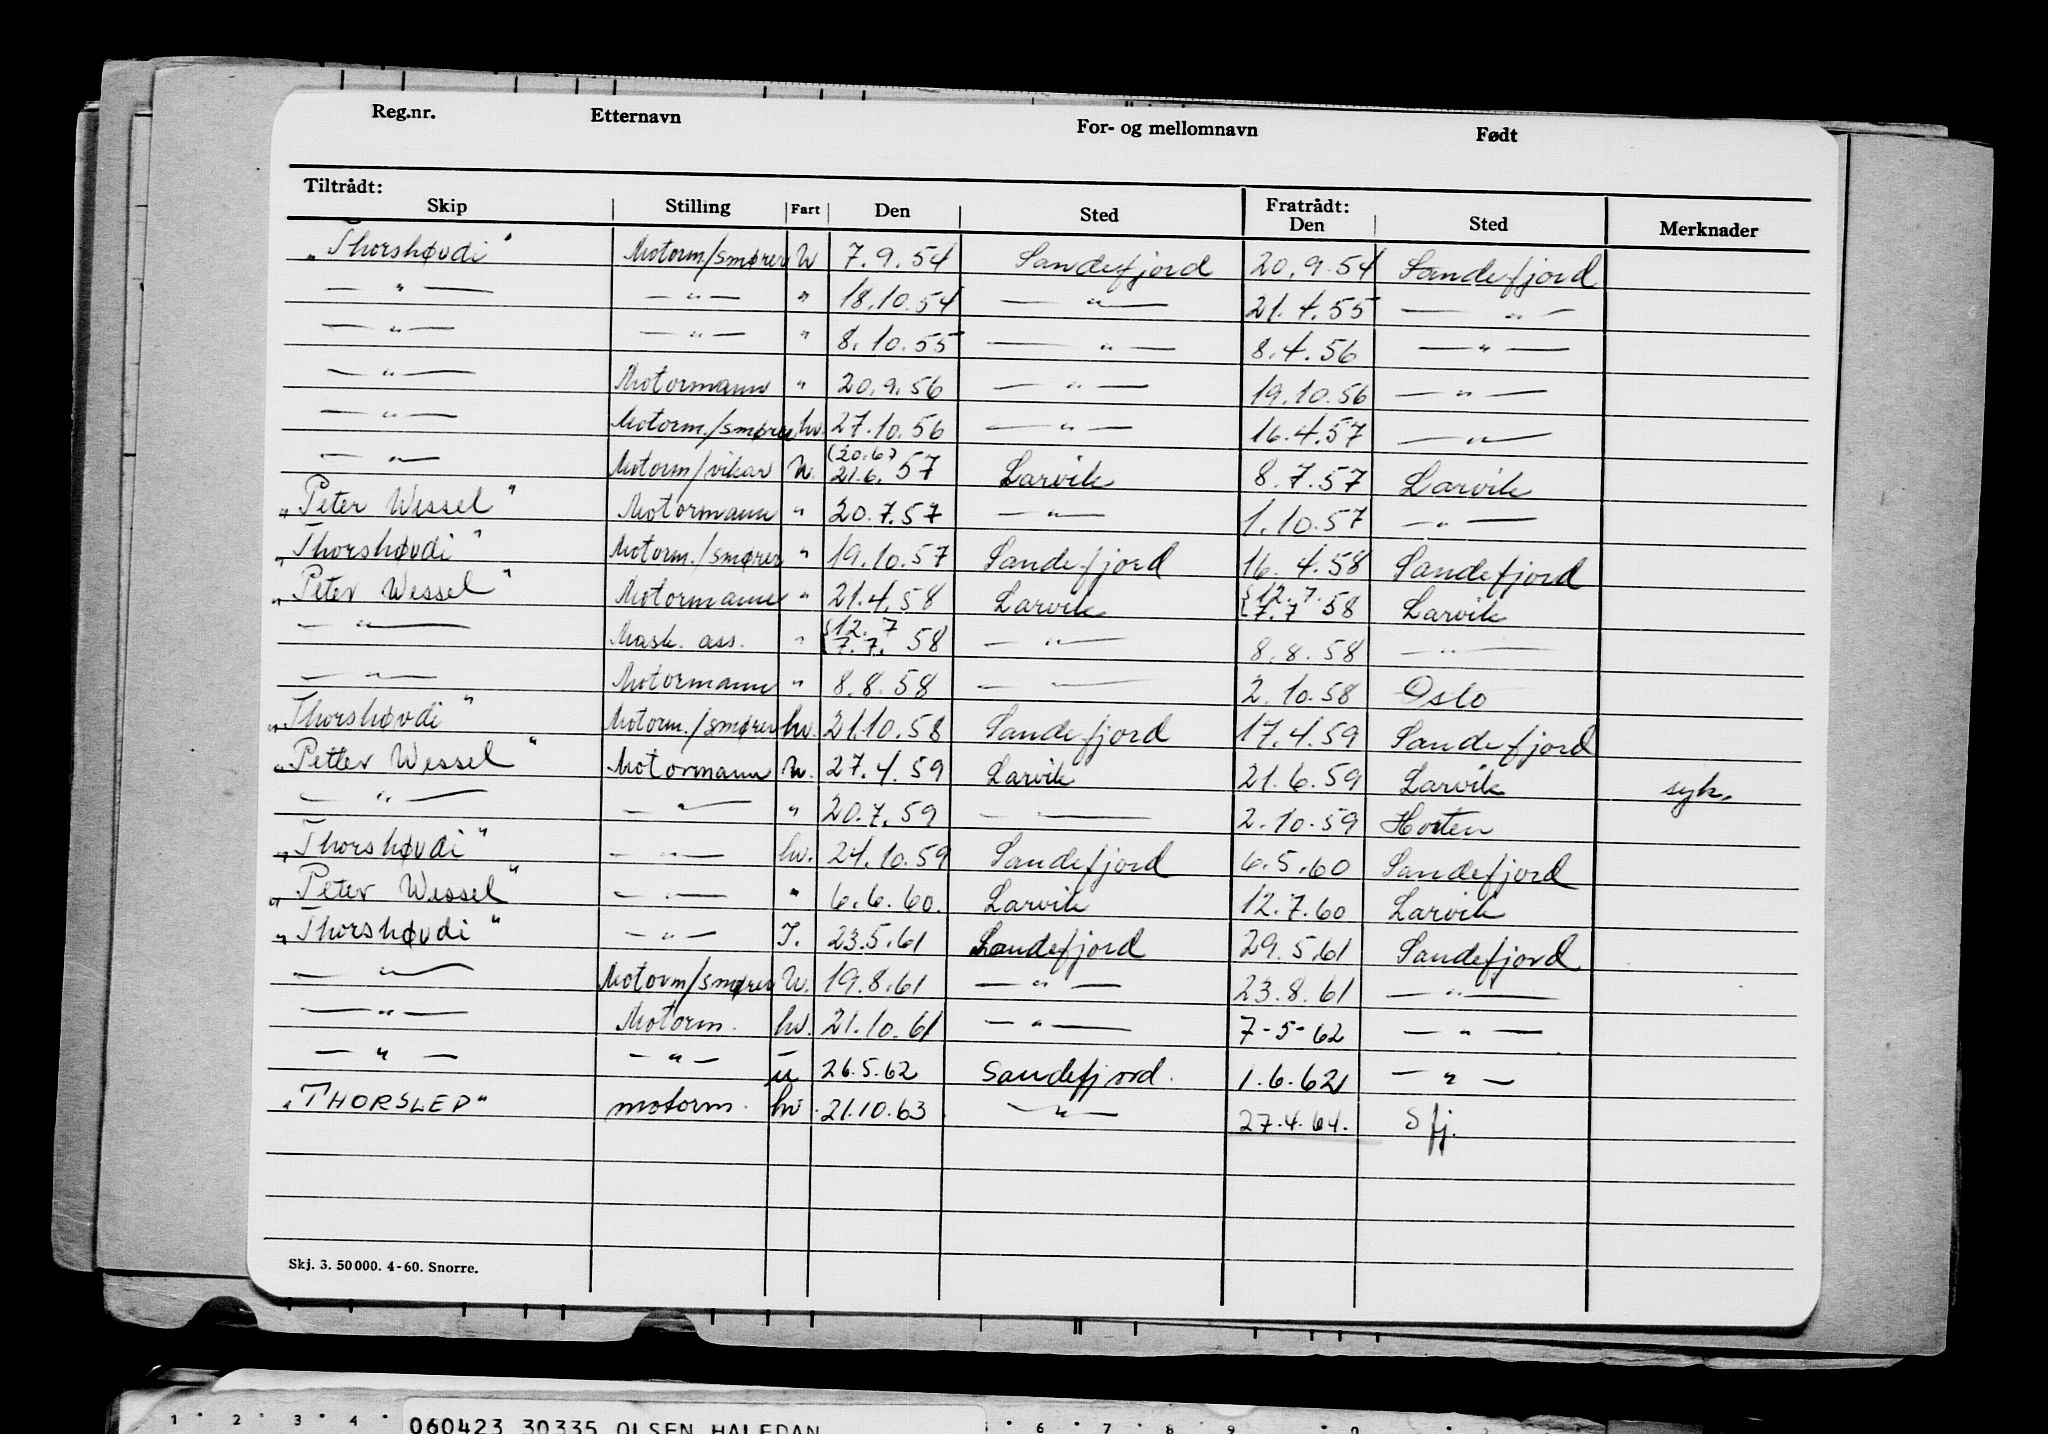 Reg.nr. Etternavn For- og mellomnavn Født
Tiltrådt: Fratrådt:
Skip Stilling Fart Den Sted Den Sted Merknader
"Thorshøvdi" Motorm./smører U 7.9.54 Sandefjord 20.9.54 Sandefjord
— " — — " — " 18.10.54 — " — 21.4.55 — " —
— " — — " — " 8.10.55 — " — 8.4.56 — " —
— " — Motormann " 20.9.56 — " — 19.10.56 — " —
— " — Motorm./smører hv. 27.10.56 — " — 16.4.57 — " —
— " — Motorm/vikar U. (20.6) 21.6.57 Larvik 8.7.57 Larvik
"Peter Wessel" Motormann " 20.7.57 — " — 1.10.57 — " —
"Thorshøvdi" Motorm./smører " 19.10.57 Sandefjord 16.4.58 Sandefjord
"Peter Wessel" Motormann " 21.4.58 Larvik {12.7. 7.7 58 Larvik
— " — Mask. ass. " {12.7 7.7. 58 — " — 8.8.58 — " —
— " — Motormann " 8.8.58 — " — 2.10.58 Oslo
"Thorshøvdi" Motorm./smører hv. 21.10.58 Sandefjord 17.4.59 Sandefjord
"Petter Wessel" Motormann U. 27.4.59 Larvik 21.6.59 Larvik syk.
— " — — " — " 20.7.59 — " — 2.10.59 Horten
"Thorshøvdi" — " — hv. 24.10.59 Sandefjord 6.5.60 Sandefjord
"Peter Wessel" — " — " 6.6.60. Larvik 12.7.60 Larvik
"Thorshøvdi" — " — I. 23.5.61 Sandefjord 29.5.61 Sandefjord
— " — Motorm/smører U. 19.8.61 — " — 23.8.61 — " —
— " — Motorm. hv. 21.10.61 — " — 7-5-62 — " —
— " — — " — u 26.5.62 Sandefjord. 1.6.62 — " —
"THORSLEP" motorm. hv. 21.10.63 — " — 27.4.64. Sfj.
Skj. 3. 50000. 4-60. Snorre.
1 2 3 4 060423 30335 OLSEN HALFDAN 6 7 8 9